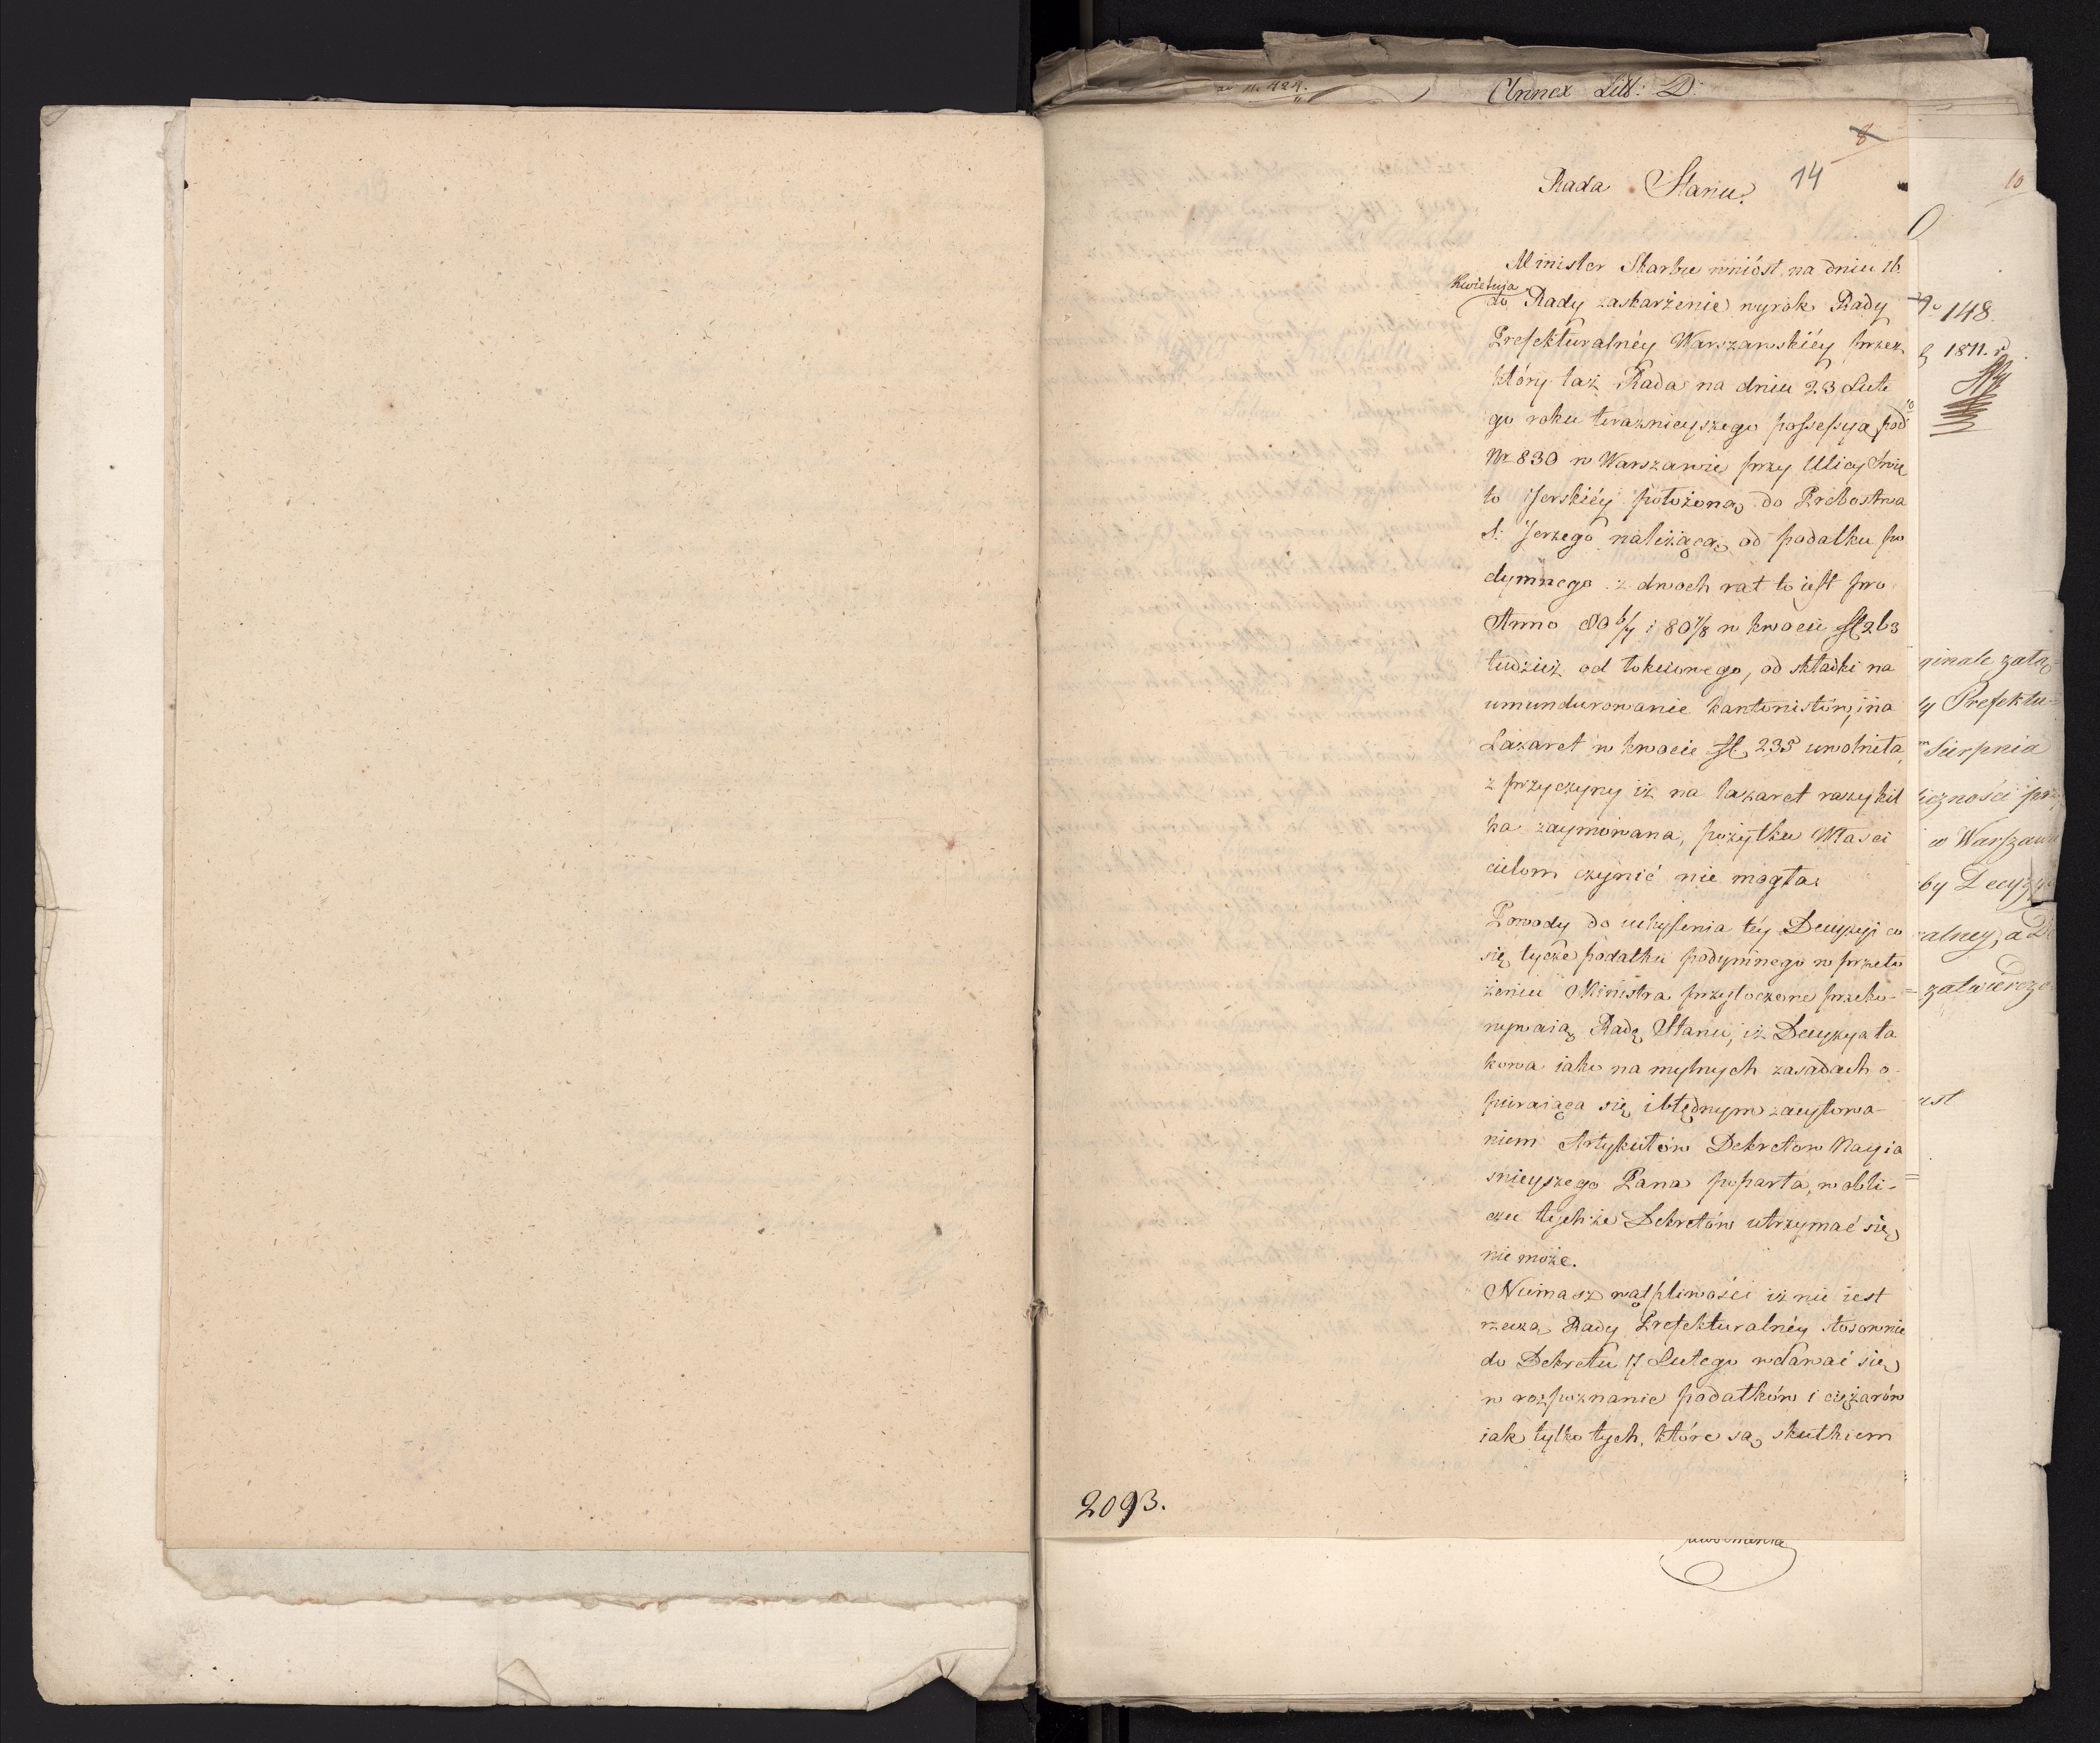 Annex Litt: D:
8
14
10
Rada Stanu.
Minister Skarbu wniósł na dniu 16
Kwietnia
do Rady zaskarżenie wyrok Rady
Prefekturalnéy Warszawskiéy przez
który taż Rada na dniu 23 Lute
go roku teraznieyszego possessyą pod
Nr 830 w Warszawie przy Ulicy Swię
to Jerskiéy położoną do Probostwa
S: Jerzego należącą od podatku po
dymnego z dwoch rat to iest pro
Anno 80 6/7 i 80 7/8 w kwocie fl 263
tudzież od łokciowego, od składki na
umundurowanie kantonistów, i na
Lazaret w kwocie fl 235 uwolniła,
z przyczyny iż na lazaret razy kil
ka zaymowana, pożytku Własci
cielom czynić nie mogła.
Powody do uchylenia téy Decyzyi co
się tycze podatku podymnego w przeło
żeniu Ministra przytoczone przeko-
nywaią Radę Stanu, iż Decyzya ta
kowa iako na mylnych zasadach o-
pieraiąca się i błędnym zacytowa-
niem Artykułów Dekretow Nayia
snieyszego Pana poparta, w obli-
czu tychże Dekretów utrzymać się
nie może.
Niemasz wątpliwości iż nie iest
rzeczą Rady Prefekturalnéy stosownie
do Dekretu 17 Lutego wdawać się
w rozpoznanie podatków i ciężarów
iak tylko tych, które są skutkiem
2093.
No 148
1811. r
ginale załą=
y Prefektu=
Sierpnia
iczności prz
w Warszaw
by Decyzy
alney, a D
zatwierdzo
est